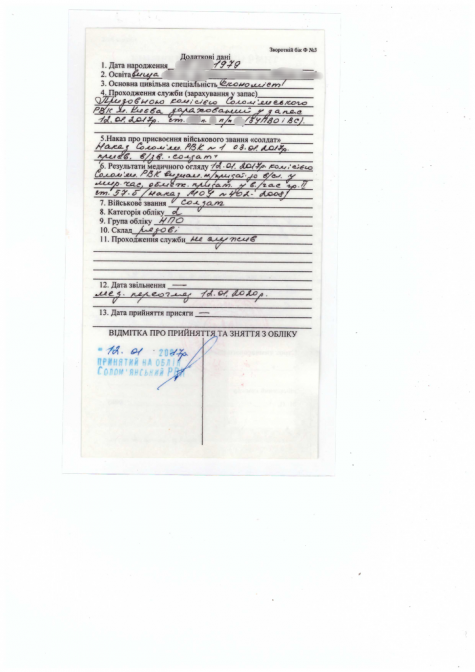 Зворотній бік Ф №2
Додаткові дані
1. Дата народження 1979
2. Освіта вища
3. Основна цивільна спеціальність Економіст
4. Проходження служби (зарахування у запас)
Призовною комісією Солом'янського
РВК м. Києва зарахований у запас
12.01.2017р. ст. п п/п
5.Наказ про присвоєння військового звання «солдат»
Наказ Солом'ян РВК № 1 03.01.2017р.
присв. в/зв. солдат
6. Результати медичного огляду 12.01.2017р комісією
Солом'ян РВК в/сл. у
мир. час, обмеж. придат. у в/час гр. II
ст. 37-б (наказ МОУ №402-2008)
7. Військове звання солдат
8. Категорія обліку 2
9. Група обліку НПО
10. Склад рядові
11. Проходження служби не служив
12. Дата звільнення —
мед. переогляд 12.01.2020р.
13. Дата прийняття присяги —
ВІДМІТКА ПРО ПРИЙНЯТТЯ ТА ЗНЯТТЯ З ОБЛІКУ
12. 01 2017р
ПРИНЯТИЙ НА ОБЛІК
СОЛОМ'ЯНСЬКИЙ РВК